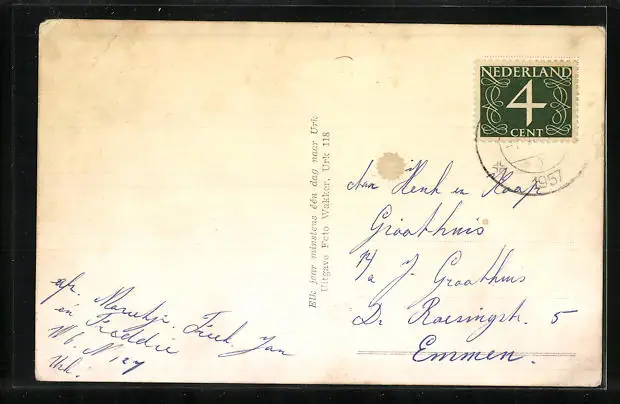 NEDERLAND
4
CENT
1957
Elk jaar minstens één dag naar Urk
Uitgave Foto Wakker, Urk 118
Aan Henk en Klaasje
Groothuis
p/a J. Groothuis
Dr. Ransingstr. 5
Emmen.
afz. Marretje. Freek. Jan
en Freddie
Wb. N 127
Urk.